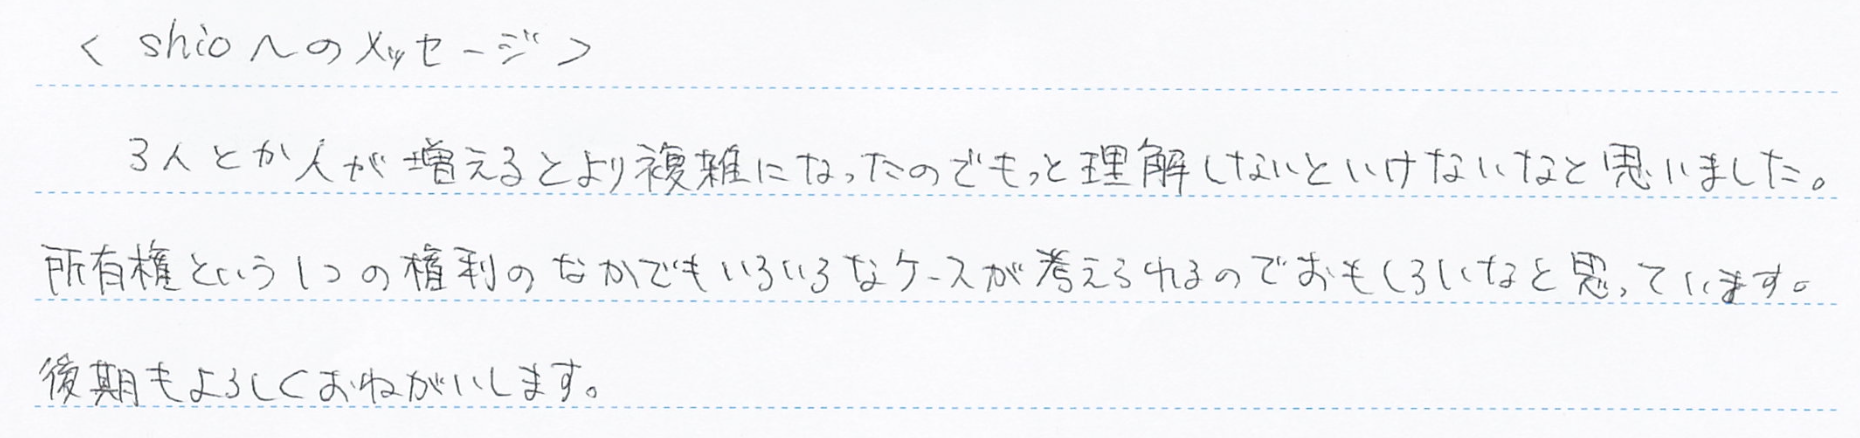 < shioへのメッセージ >
3人とか人が増えるとより複雑になったのでもっと理解しないといけないなと思いました。
所有権という1つの権利のなかでもいろいろなケースが考えられるのでおもしろいなと思っています。
後期もよろしくおねがいします。